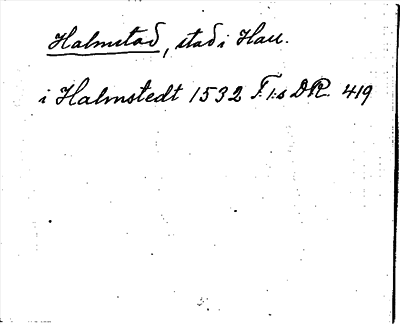 Halmstad, stad i Hall.
i Halmstedt 1532 F.1:s DR. 419